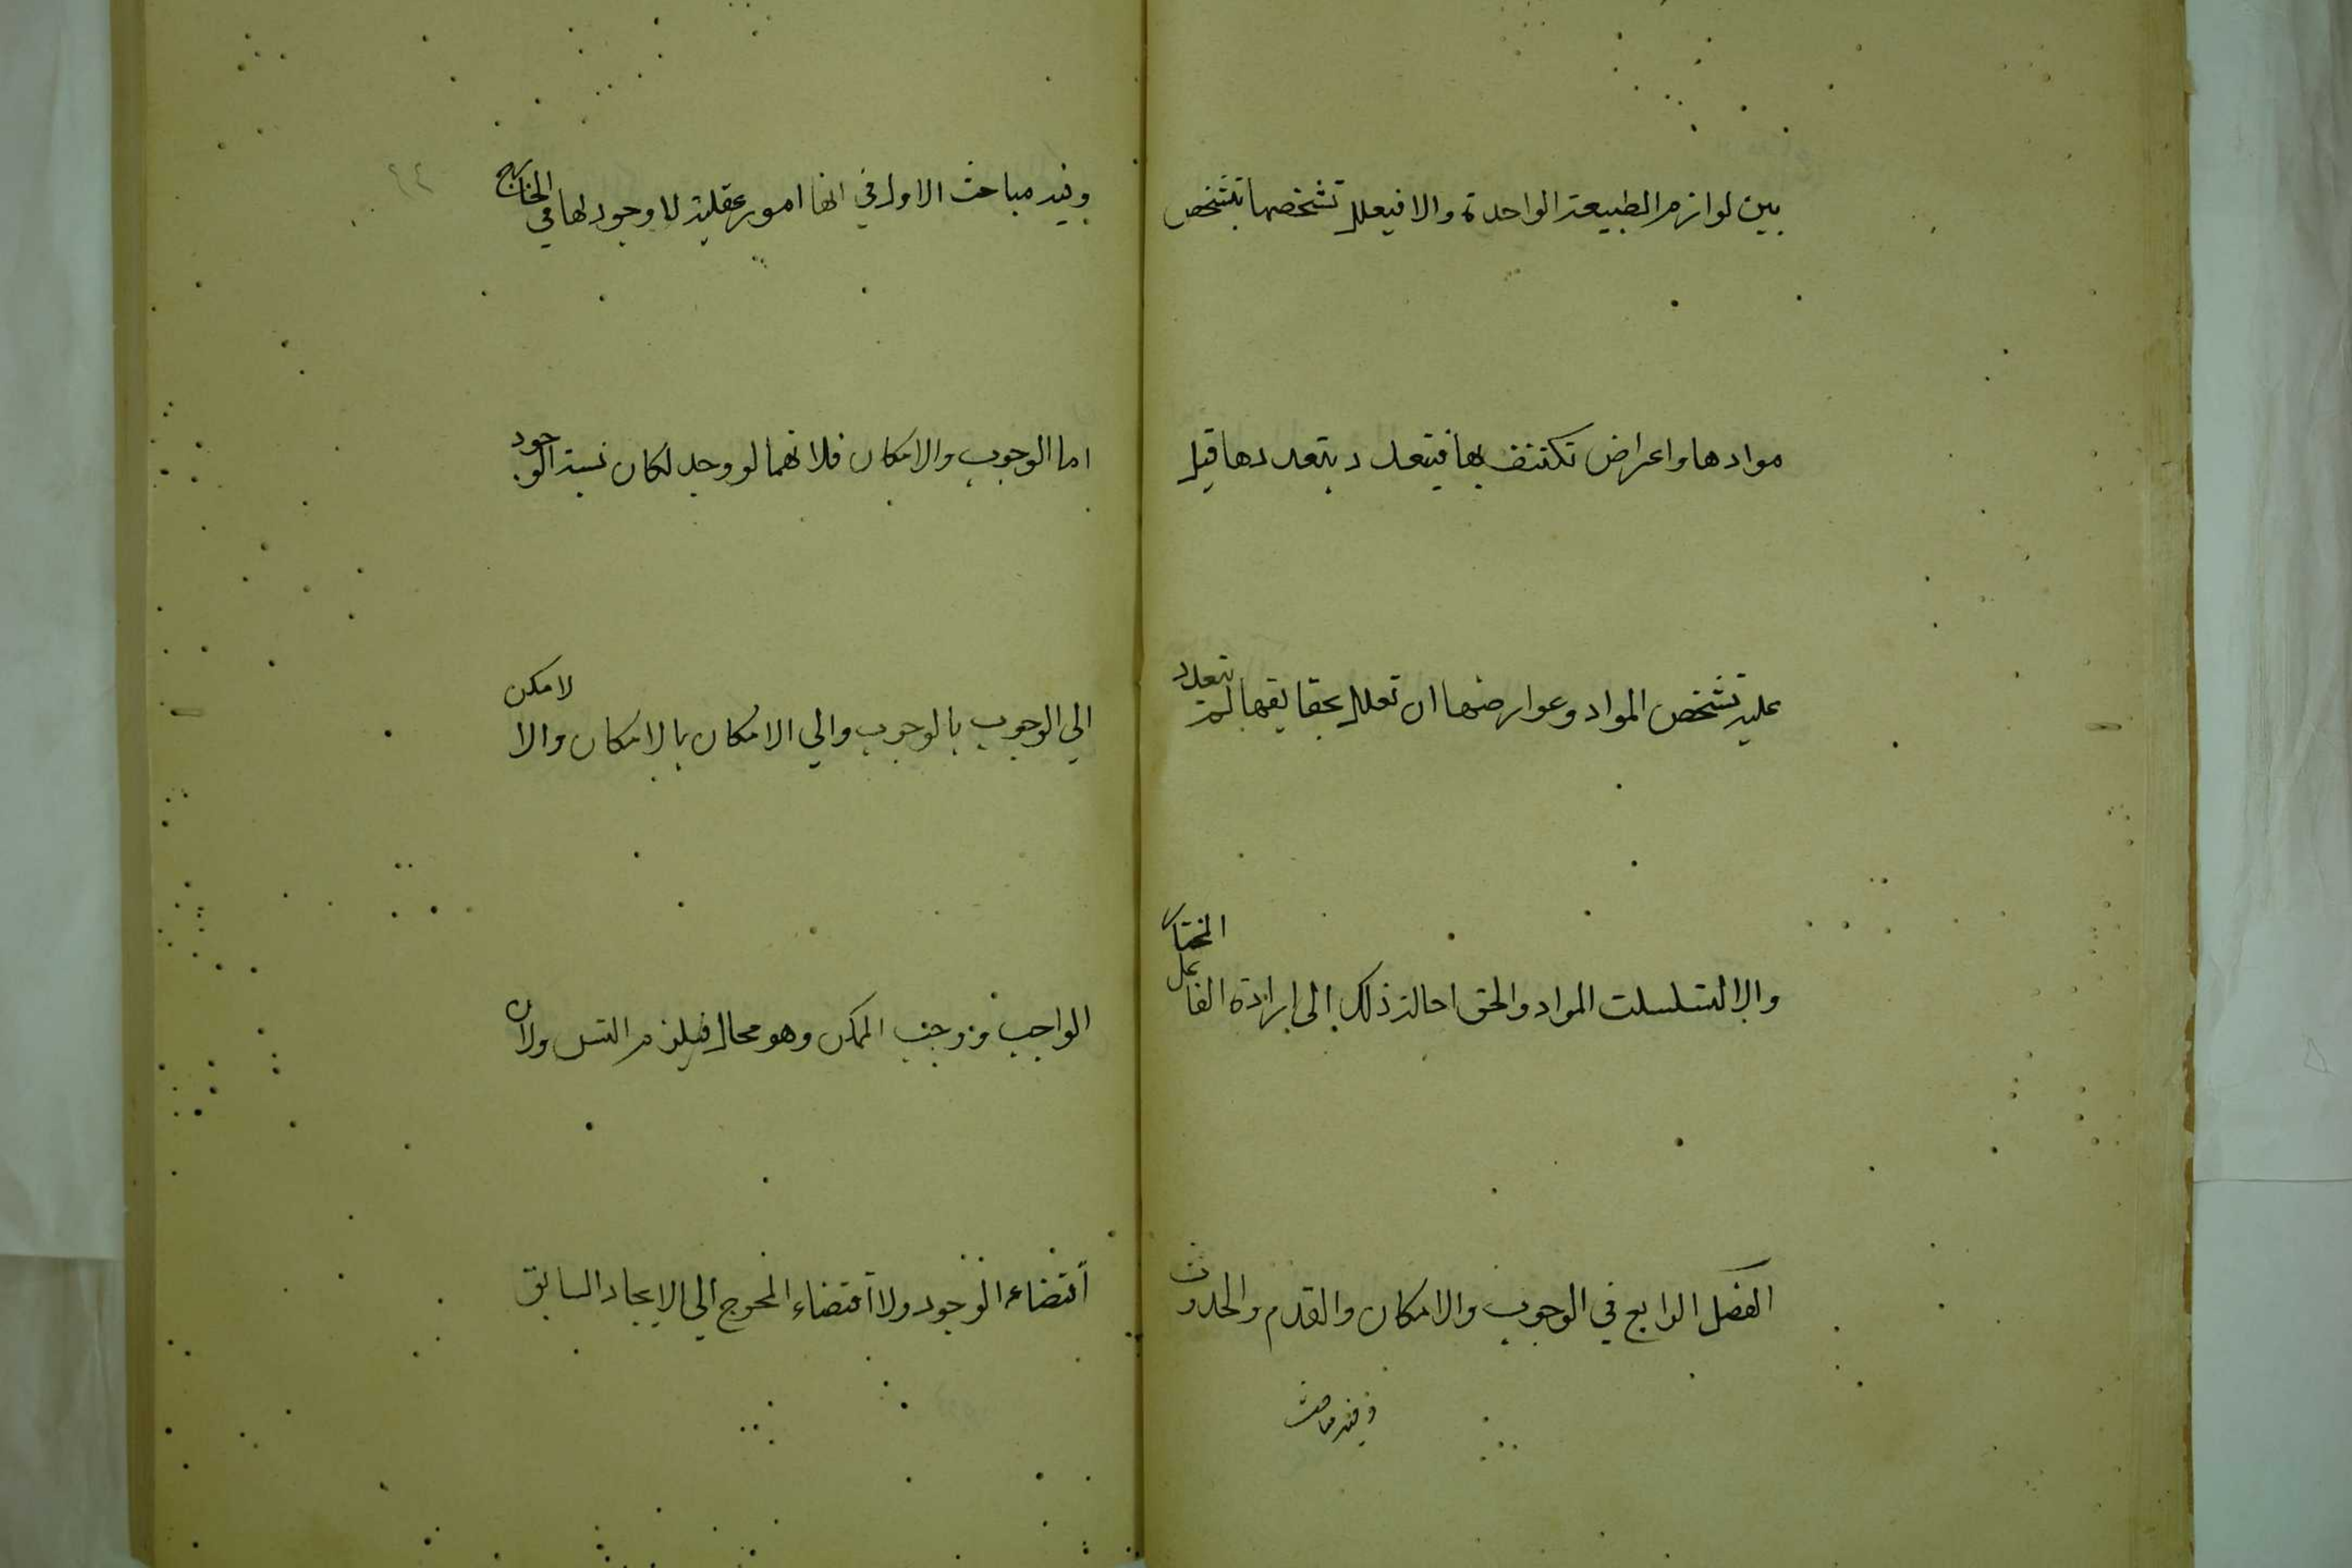 بين لوازم الطبيعة الواحدة والا فيعلل تشخصها بتشخص
موادها واعراض تكتنف بها فيتعدد بتعددها قيل
عليه تشخص المواد وعوارضها ان تعلل بحقايقها لم تتعدد
والا لتسلسلت المواد والحق احالة ذلك الى ارادة الفاعل المختار
الفصل الرابع في الوجوب والامكان والقدم والحدوث
وفيه مباحث
٤٤
وفيه مباحث الاول في انها امور عقلية لا وجود لها في الخارج
اما الوجوب والامكان فلانهما لو وجد لكان نسبة الوجود
الي الوجوب بالوجوب والي الامكان بالامكان والا لامكن
الواجب ووجب الممكن وهو محال فيلزم التس ولان
اقتضاء الوجود ولا اقتضاء المحوج الي الايجاد السابق